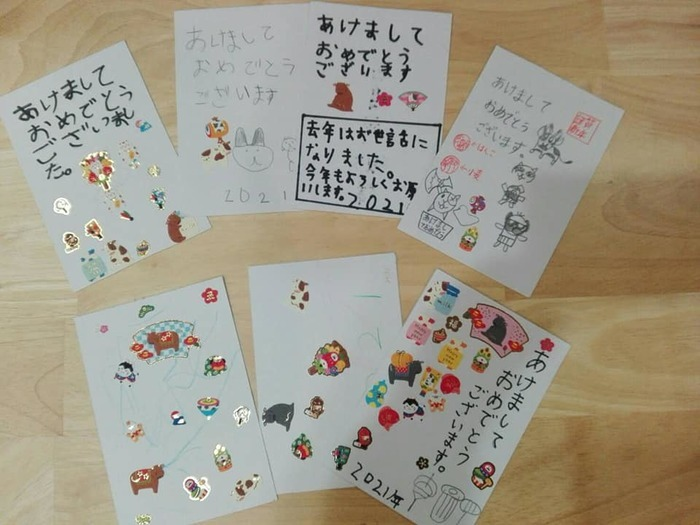 あけまして
おめでとう
あけまして
おめでとう
ございます
2021
あけまして
おめでとう
ございます
去年はお世話に
なりました。
今年もよろしくお願
いします。2021
あけまして
おめでとう
ございます。
あけまして
あけまして
おめでとう
ございます。
2021年